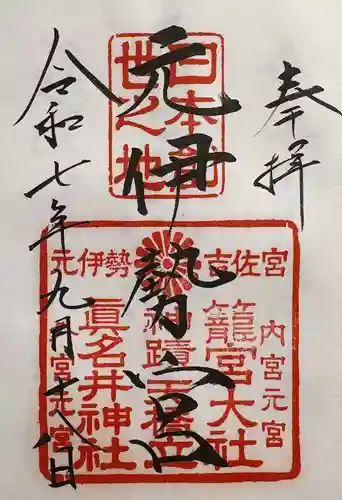 奉拝
元伊勢宮
令和七年九月十八日
日本
世之地
元伊勢
吉佐宮
内宮元宮
籠宮大社
神蹟
眞名井神社